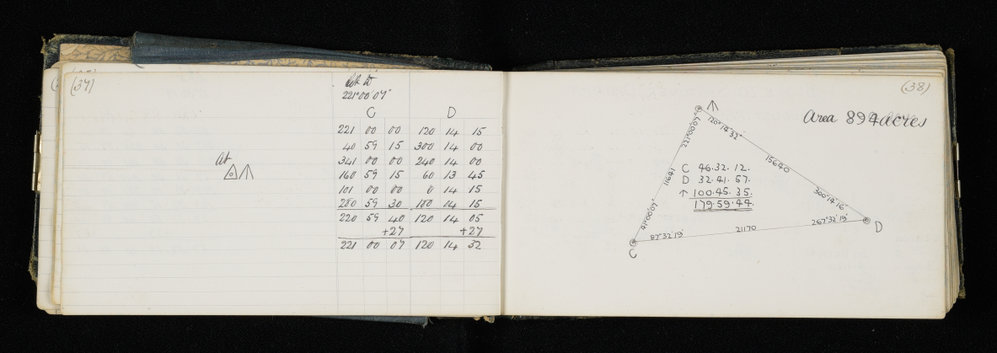 (37)
Set to
221° 00' 07"
C D
221 00 00 120 14 15
40 59 15 300 14 00
341 00 00 240 14 00
160 59 15 60 13 45
101 00 00 0 14 15
280 59 30 180 14 15
220 59 40 120 14 05
+27 +27
221 00 07 120 14 32
At
(38)
Area 894 acres
120° 14' 32"
221° 00' 07"
15640
11641
C 46. 32. 12.
D 32. 41. 57.
↑ 100. 45. 35.
179. 59. 44.
300° 14' 16"
41° 00' 07"
267° 32' 19"
87° 32' 19"
21170
C
D